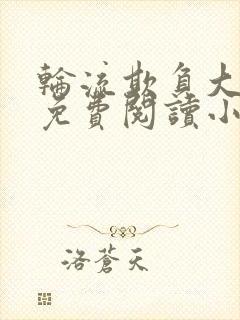 輪流欺負大
免費閱讀小
洛蒼天